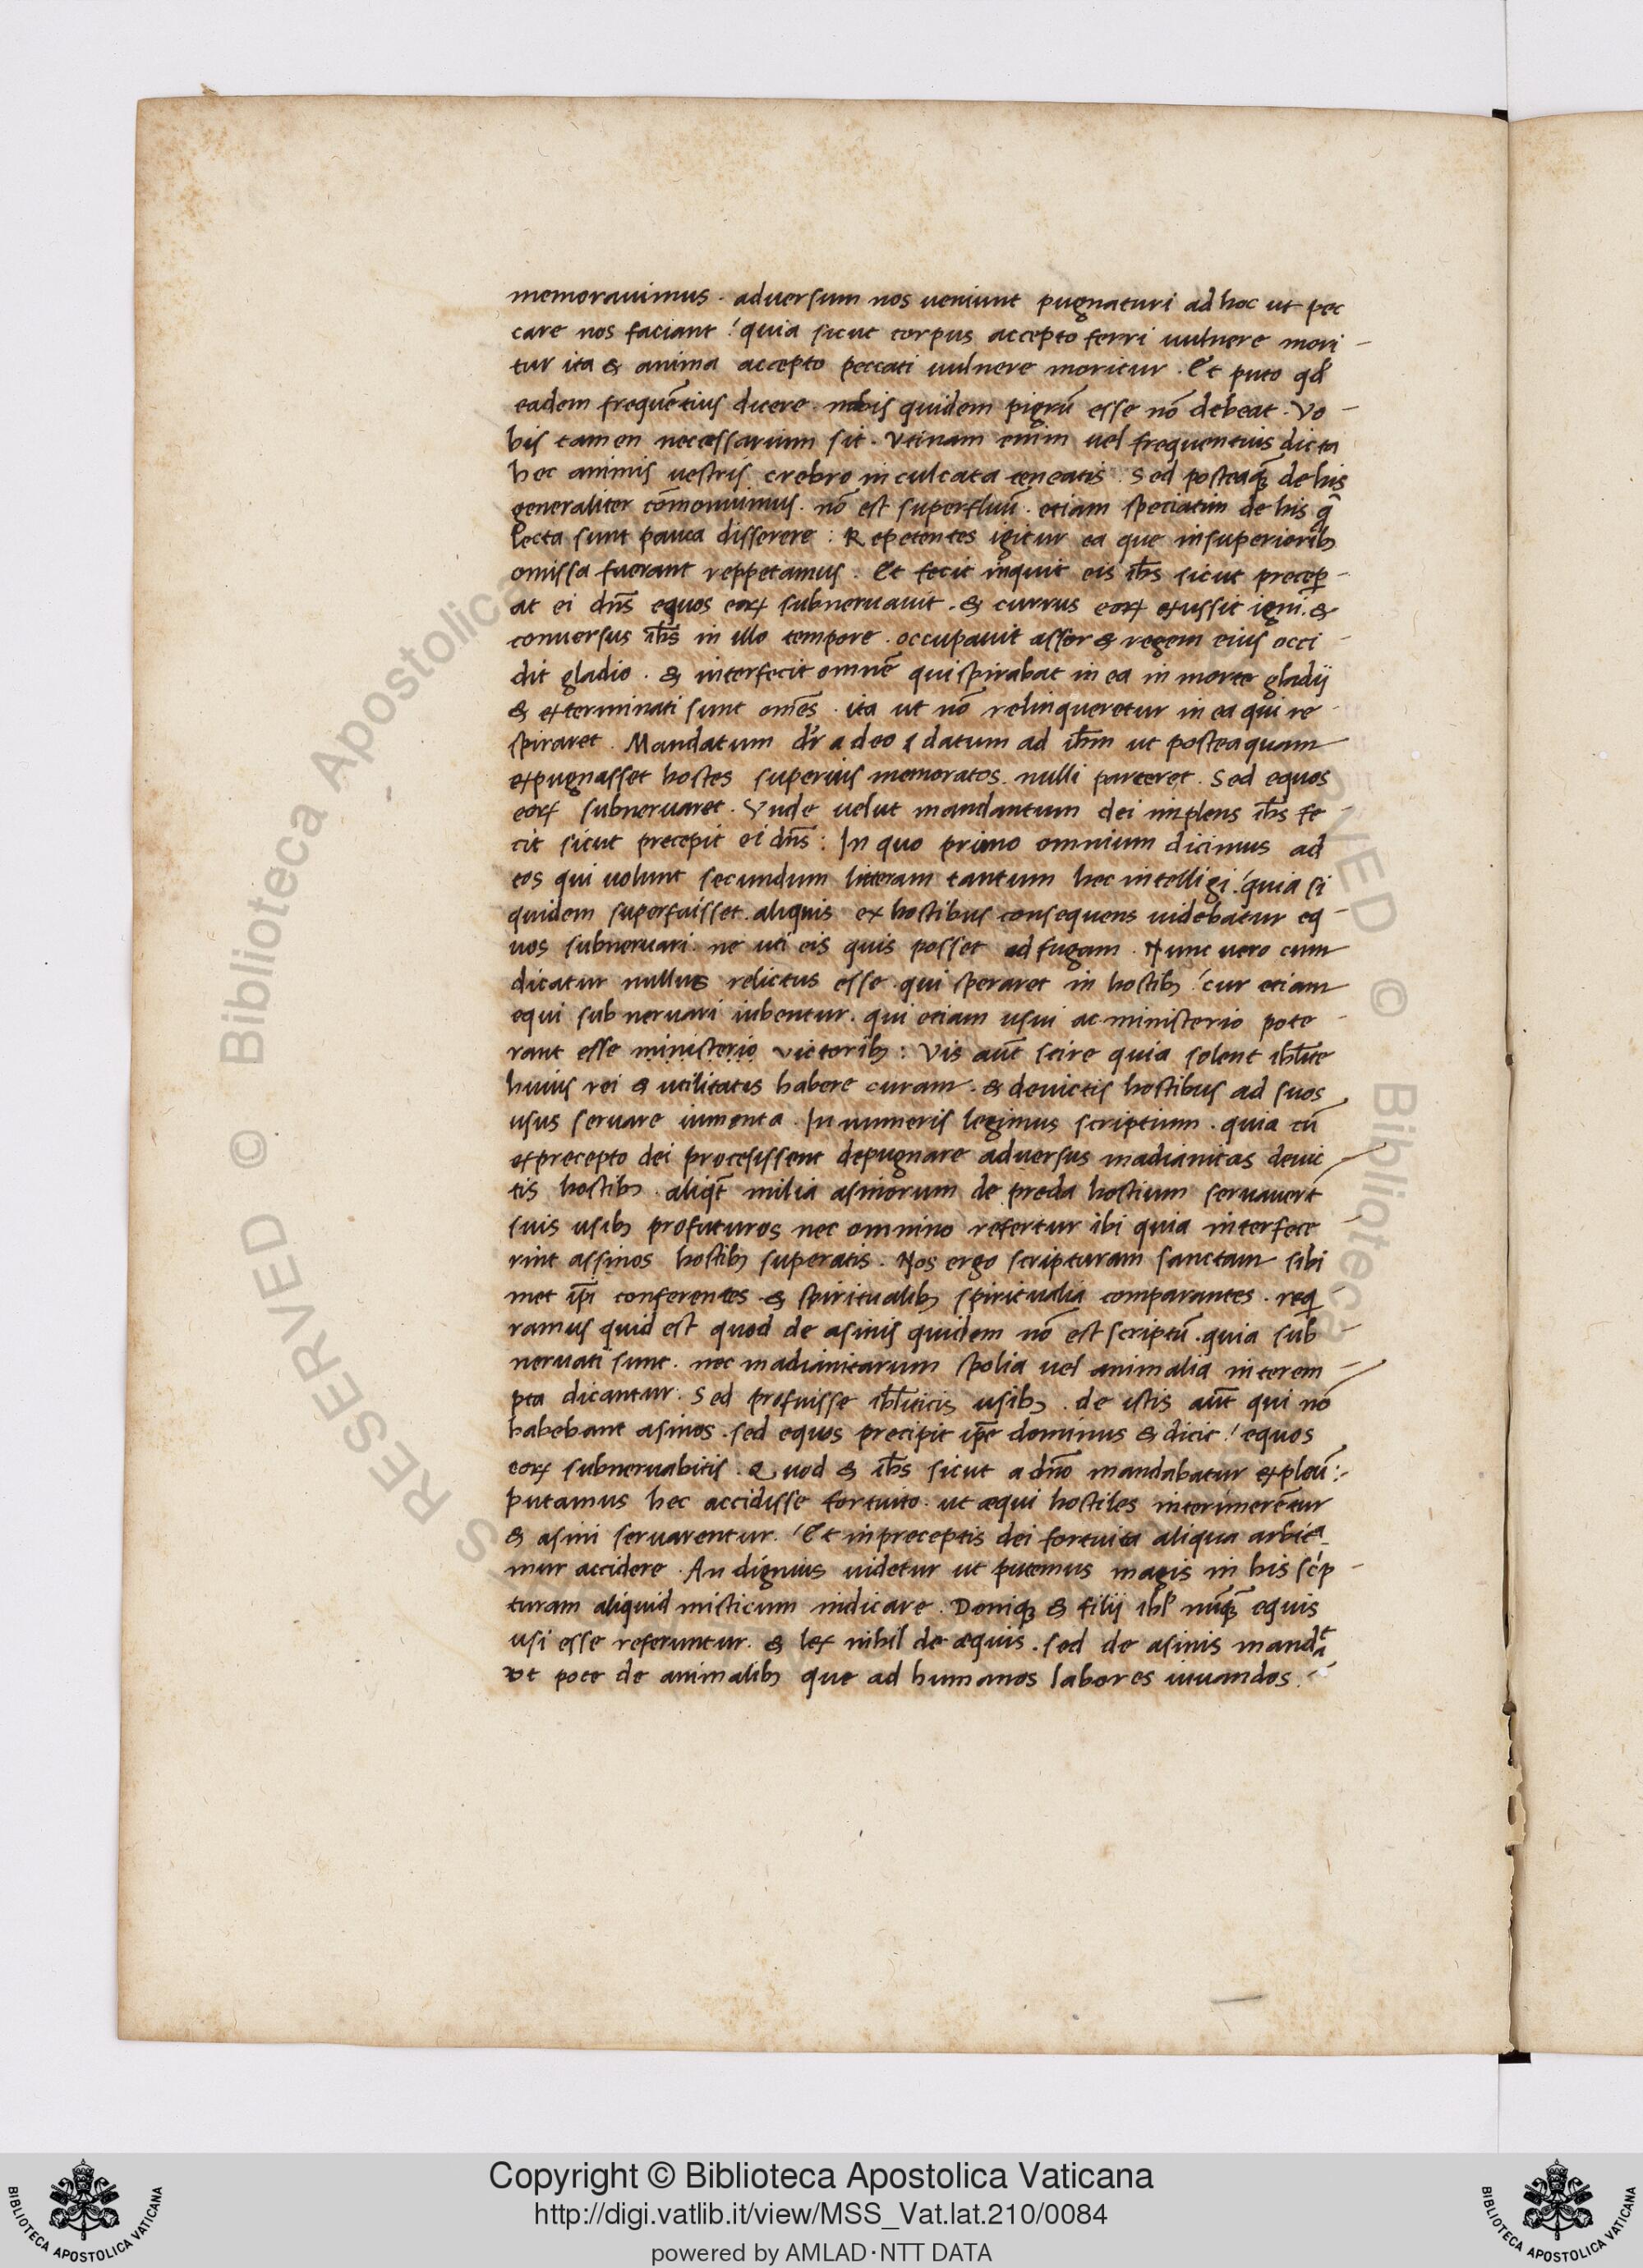 memorauimus . aduersum nos ueniunt pugnaturi ad hoc ut pec
care nos faciant : quia sicut corpus accepto ferri uulnere mori -
tur ita & anima accepto peccati uulnere moritur . Et puto qđ
eadem frequētius dicere . nobis quidem pigrū esse nō debeat . Vo -
bis tamen necessarium sit . Vtinam enim uel frequentius dicta
hec animis uestris crebro inculcata teneatis . Sed posteaqꝫ de his
generaliter cōmonuimus . nō est superfluū . etiam speciatim de his q̄
lecta sunt pauca disserere : Repetentes igitur ea que in superiorib
omissa fuerant reppetamus . Et fecit inquit eis ih̄s sicut precep -
at ei dn̄s equos eoꝝ subneruauit . & currus eoꝝ exussit igni . &
conuersus ih̄s in illo tempore . occupauit assor & regem eius occi -
dit gladio . & interfecit omnē qui spirabat in ea in morte gladij
& exterminati sunt om̄es . ita ut nō relinqueretur in ea qui re -
spiraret . Mandatum dr̄ a deo datum ad ih̄m ut posteaquam
expugnasset hostes superius memoratos . nulli parceret . Sed equos
eoꝝ subneruaret . Vnde uelut mandantum dei implens ih̄s fe -
cit sicut precepit ei dn̄s : In quo primo omnium dicimus ad
eos qui uolunt secundum litteram tantum hec intelligi : quia si
quidem superfuisset . aliquis ex hostibus consequens uidebatur eq -
uos subneruari . ne uti eis quis posset ad fugam . Nunc uero cum
dicatur nullus relictus esse . qui speraret in hostib : cur etiam
equi subneruari iubentur . qui etiam usui ac ministerio pote -
rant esse ministerio victorib : Vis aūt scire quia solent ihl̄ite
huius rei & utilitatis habere curam . & deuictis hostibus ad suos
usus seruare iumenta . In numeris legimus scriptum . quia cū
ex precepto dei processissent depugnare aduersus madianitas deuic
tis hostib . aliqt̄ milia asinorum de preda hostium seruauert̄
suis usib profuturos nec omnino refertur ibi quia interfece -
rint assinos hostib superatis . Nos ergo scripturam sanctam sibi
met ip̄i conferentes & spiritualib spiritualia comparantes . req
ramus quid est quod de asinis quidem nō est scriptū . quia sub -
neruati sunt . nec madianitarum spolia uel animalia interem -
pta dicantur . Sed profuisse ihl̄iticis usib . de istis aūt qui nō
habebant asinos . sed equos precipit ip̄e dominus & dicit : equos
eoꝝ subneruabitis . Quod & ih̄s sicut a dn̄o mandabatur expleuit :
putamus hec accidisse fortuito . ut æqui hostiles interimerētur
& asini seruarentur . Et in preceptis dei fortuita aliqua arbit̄a -
mur accidere . An dignius uidetur ut putemus magis in his scrip -
turam aliquid misticum indicare . Deniqꝫ & filij ihl̄ nūqꝫ equis
usi esse referuntur . & lex nihil de æquis . sed de asinis mandat
vt pote de animalib que ad humanos labores iuuandos .
Copyright © Biblioteca Apostolica Vaticana
http://digi.vatlib.it/view/MSS_Vat.lat.210/0084
powered by AMLAD·NTT DATA